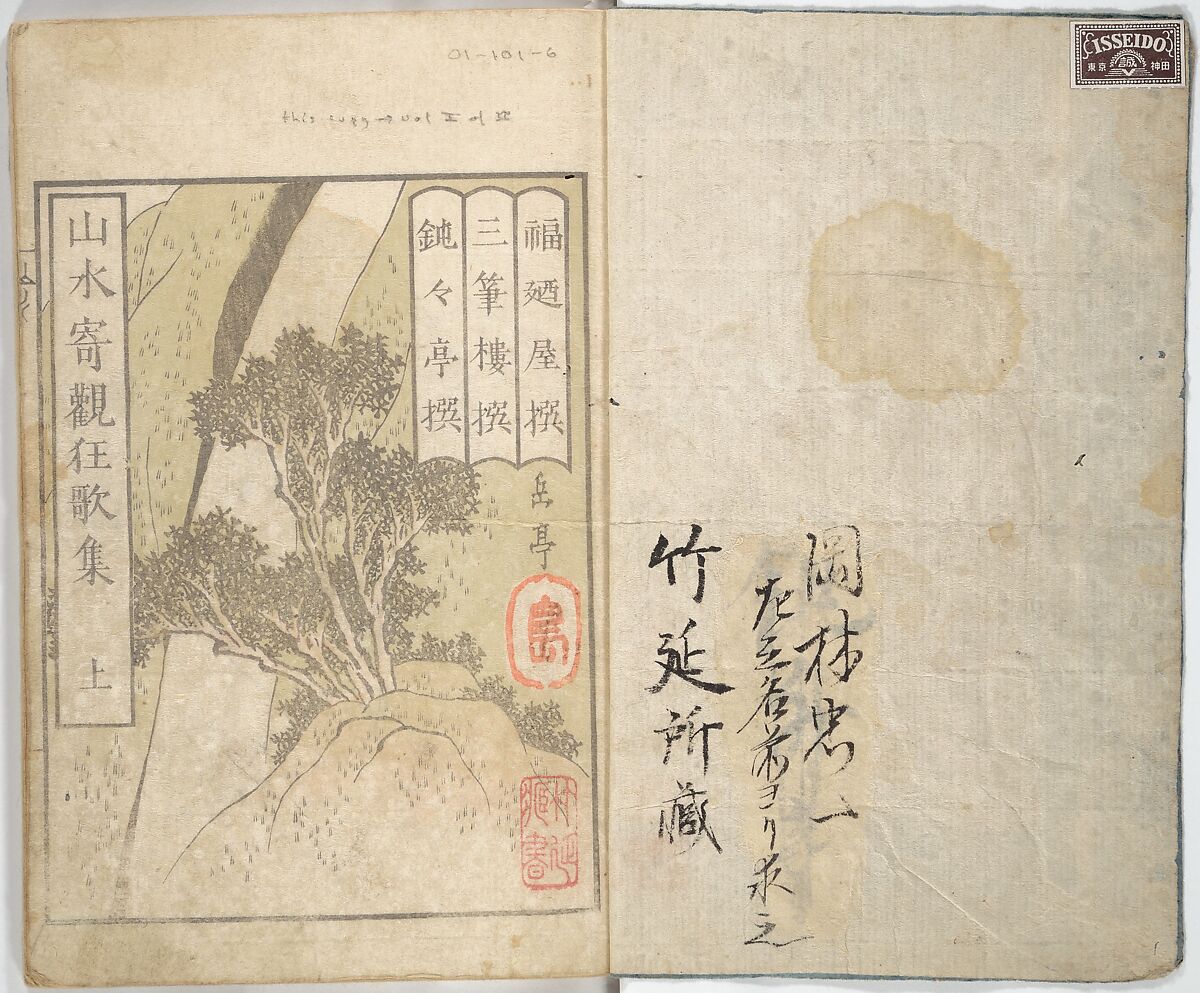 ISSEIDO
東京 誠 神田
岡林忠一
名前ヨリ求之
竹延所藏
01-101-6
this copy → vol I of II
福廼屋撰
三筆樓撰
鈍々亭撰
岳亭
竹延
藏書
山水寄觀狂歌集 上